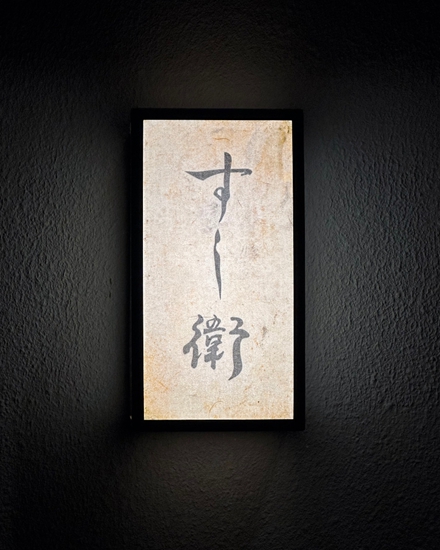 すし衛